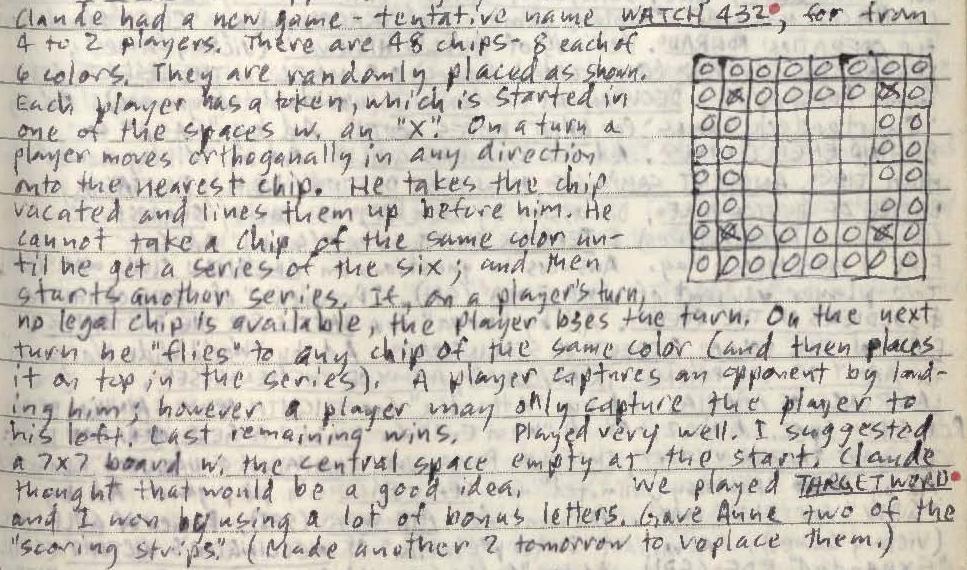 Claude had a new game - tentative name WATCH 432, for from
4 to 2 players. There are 48 chips - 8 each of
6 colors. They are randomly placed as shown.
Each player has a token, which is started in
one of the spaces w. an "X". On a turn a
player moves orthoganally in any direction
onto the nearest chip. He takes the chip
vacated and lines them up before him. He
cannot take a chip of the same color un-
til he get a series of the six; and then
starts another series. If, on a player's turn,
no legal chip is available, the player loses the turn. On the next
turn he "flies" to any chip of the same color (and then places
it on top in the series). A player captures an opponent by land-
ing him; however a player may only capture the player to
his left. Last remaining wins. Played very well. I suggested
a 7x7 board w. the central space empty at the start. Claude
thought that would be a good idea. We played TARGET WORD
and I won by using a lot of bonus letters. Gave Anne two of the
"scoring strips". (Made another 2 tomorrow to replace them.)